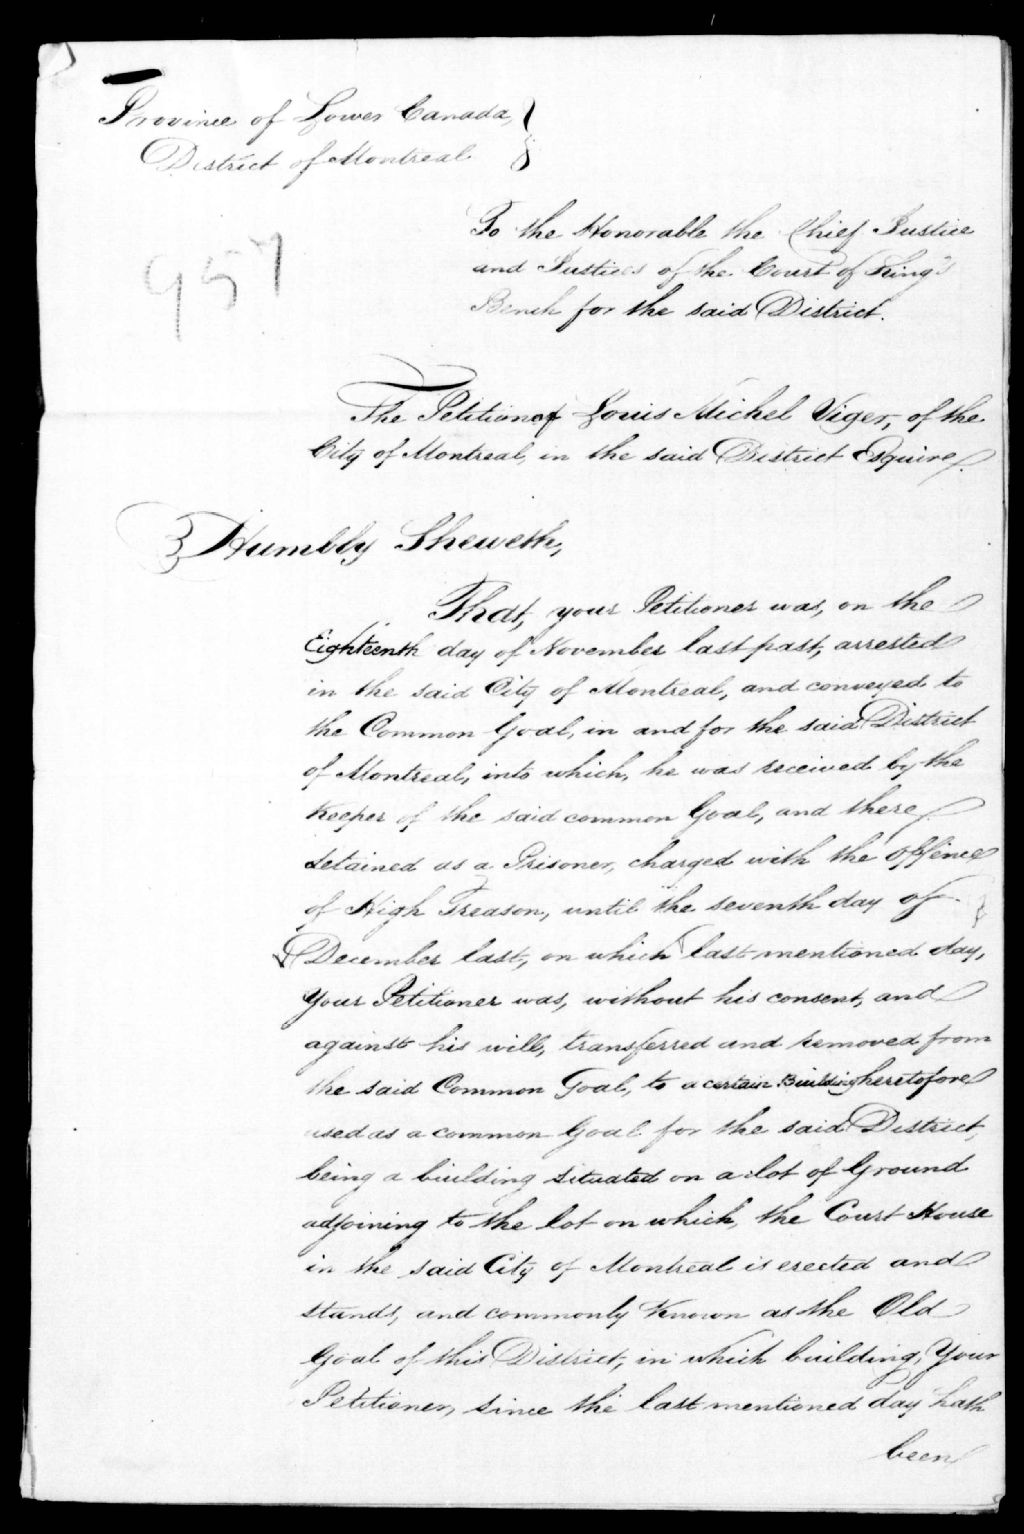 Province of Lower Canada,
District of Montreal
957
To the Honorable the Chief Justice
and Justices of the Court of King's
Bench for the said District.
The Petition of Louis Michel Viger, of the
City of Montreal, in the said District Esquire.
Humbly Sheweth,
That, your Petitioner was, on the
Eighteenth day of November last past, arrested
in the said City of Montreal, and conveyed to
the Common Goal, in and for the said District
of Montreal, into which, he was received by the
Keeper of the said common Goal, and there
detained as a Prisoner, charged with the offence
of High Treason, until the seventh day of
December last, on which last mentioned day,
Your Petitioner was, without his consent, and
against his will, transferred and removed from
the said Common Goal, to a certain Building heretofore
used as a common Goal for the said District,
being a building situated on a lot of Ground
adjoining to the lot on which, the Court House
in the said City of Montreal is erected and
stands, and commonly Known as the Old
Goal of this District, in which building, Your
Petitioner, since the last mentioned day hath
been